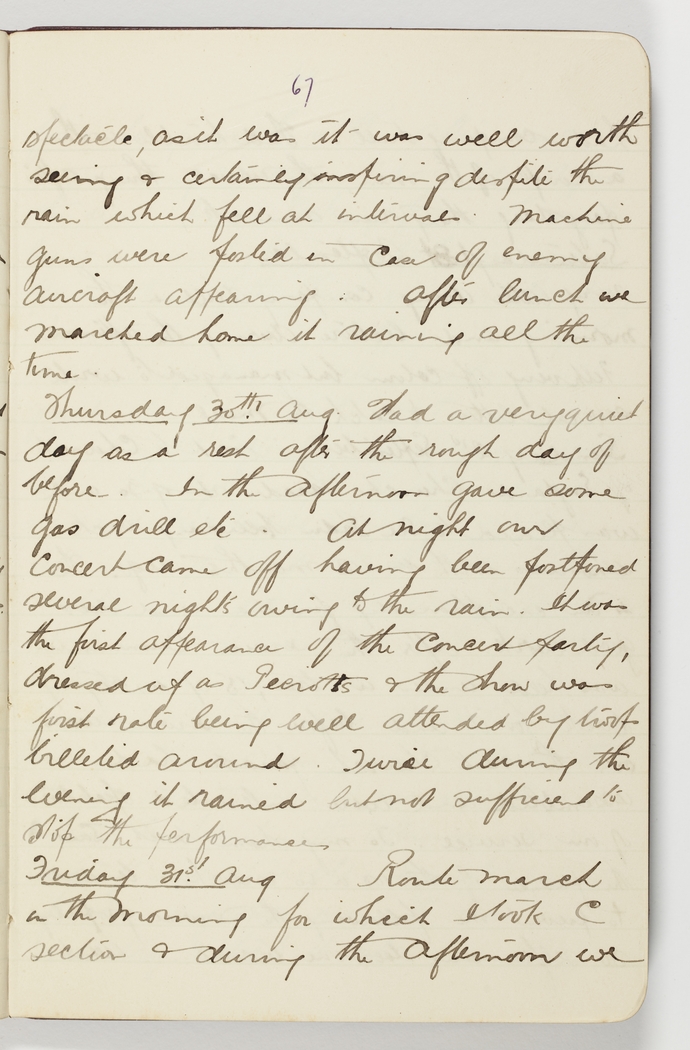 67
spectacle, as it was it was well worth
seeing & certainly inspiring despite the
rain which fell at intervals. Machine
guns were posted in case of enemy
aircraft appearing. After lunch we
marched home it raining all the
time.
Thursday 30th Aug. Had a very quiet
day as a rest after the rough day of
before. In the afternoon gave some
gas drill etc. At night our
concert came off having been postponed
several nights owing to the rain. It was
the first appearance of the concert party,
dressed up as Peirotts & the show was
first rate being well attended by troops
billeted around. Twice during the
evening it rained but not sufficient to
stop the performances
Friday 31st Aug Route march
in the morning for which I took C
section & during the afternoon we